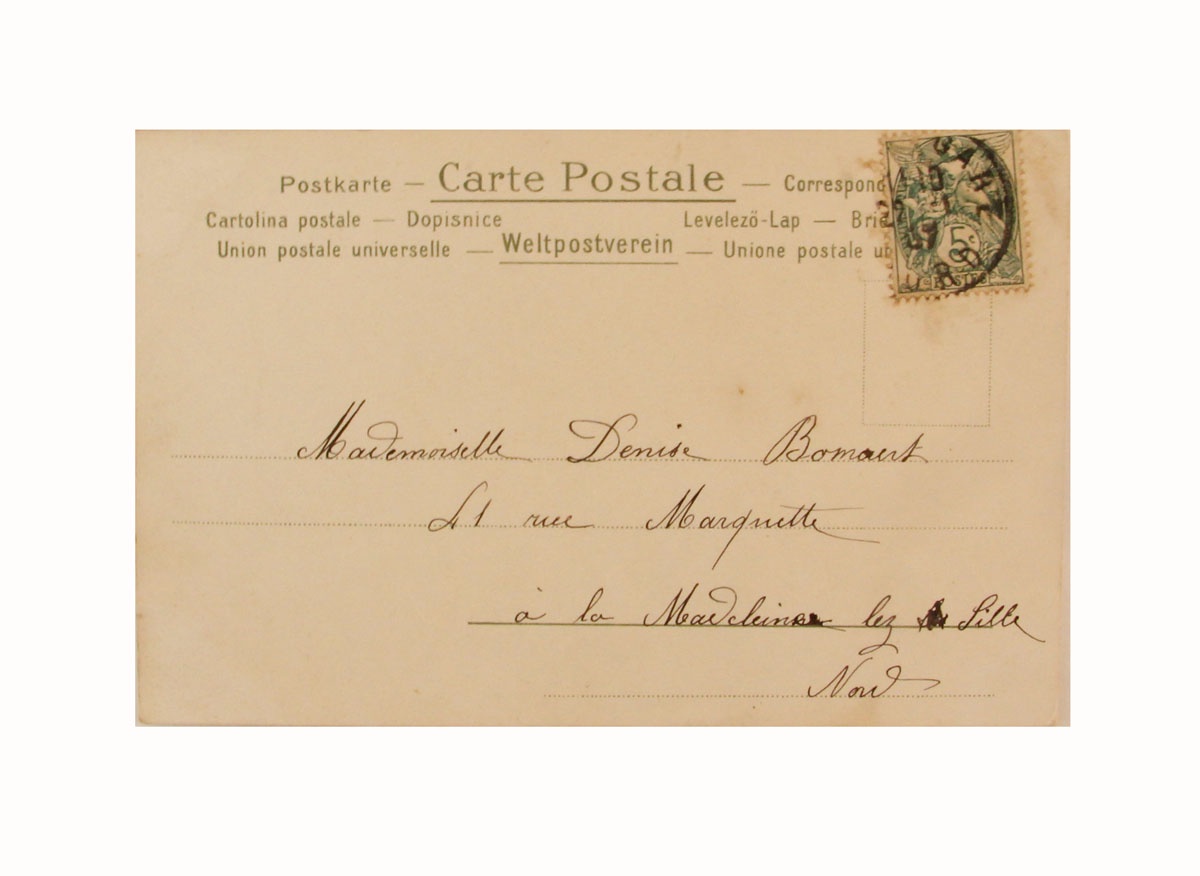 Postkarte — Carte Postale — Correspond
Cartolina postale — Dopisnice Levelező-Lap — Brie
Union postale universelle — Weltpostverein — Unione postale un
5
POSTES
Mademoiselle Denise Bomaert
41 rue Marquette
à la Madeleine lez Lille
Nord